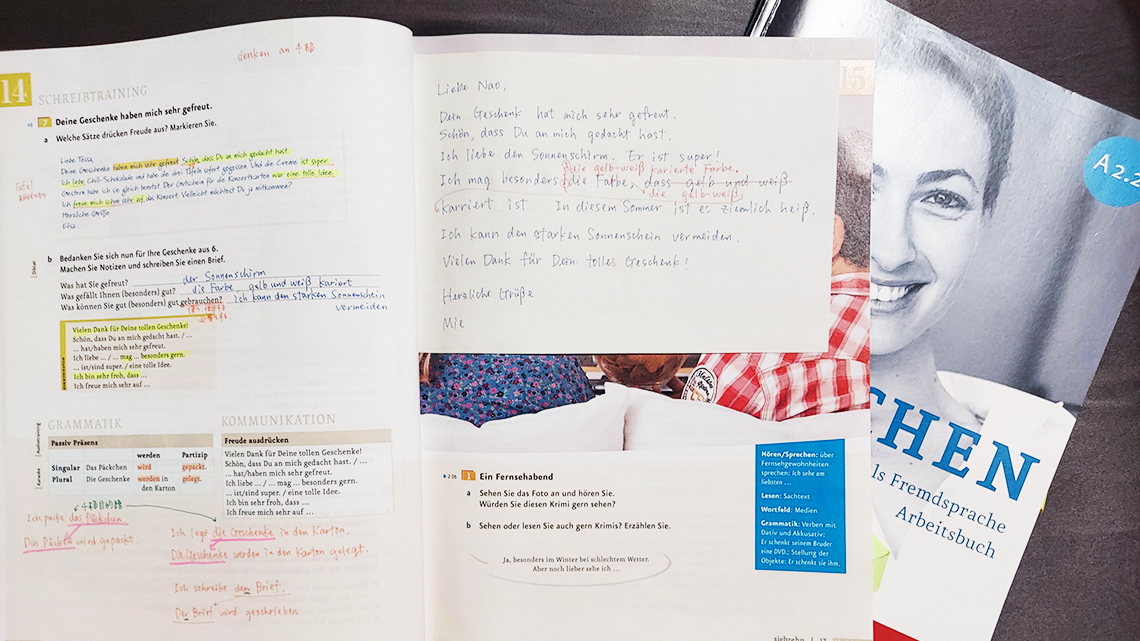 denken an 4格
14
SCHREIBTRAINING
7 Deine Geschenke haben mich sehr gefreut.
a Welche Sätze drücken Freude aus? Markieren Sie.
Liebe Tessa,
Deine Geschenke haben mich sehr gefreut. Schön, dass Du an mich gedacht hast.
Ich liebe Chili-Schokolade und habe die drei Tafeln sofort gegessen. Und die Creme ist super.
Gestern habe ich sie gleich benutzt. Der Gutschein für die Konzertkarten war eine tolle Idee.
Ich freue mich schon sehr auf das Konzert. Vielleicht möchtest Du ja mitkommen?
Herzliche Grüße
Elsa
b Bedanken Sie sich nun für Ihre Geschenke aus 6.
Machen Sie Notizen und schreiben Sie einen Brief.
Was hat Sie gefreut? der Sonnenschirm
Was gefällt Ihnen (besonders) gut? die Farbe, gelb und weiß kariert
Was können Sie gut (besonders) gut gebrauchen? Ich kann den starken Sonnenschein
vermeiden
Vielen Dank für Deine tollen Geschenke!
Schön, dass Du an mich gedacht hast. / ...
... hat/haben mich sehr gefreut.
Ich liebe ... / ... mag ... besonders gern.
... ist/sind super. / eine tolle Idee.
Ich bin sehr froh, dass ...
Ich freue mich sehr auf ...
GRAMMATIK
Passiv Präsens
werden Partizip
Singular Das Päckchen wird gepackt.
Plural Die Geschenke werden in gelegt.
den Karton
KOMMUNIKATION
Freude ausdrücken
Vielen Dank für Deine tollen Geschenke!
Schön, dass Du an mich gedacht hast. / ...
... hat/haben mich sehr gefreut.
Ich liebe ... / ... mag ... besonders gern.
... ist/sind super. / eine tolle Idee.
Ich bin sehr froh, dass ...
Ich freue mich sehr auf ...
Ich packe das Päckchen.
Das Päcken wird gepackt.
Ich lege die Geschenke in den Karton.
Die Geschenke werden in den Karton gelegt.
Ich schreibe den Brief.
Der Brief wird geschrieben
Liebe Nao,
Dein Geschenk hat mich sehr gefreut.
Schön, dass Du an mich gedacht hast.
Ich liebe den Sonnenschirm. Er ist super!
die gelb-weiß karierte Farbe.
Ich mag besonders die Farbe, dass gelb und weiß
die gelb-weiß
karriert ist. In diesem Sommer ist es ziemlich heiß.
Ich kann den starken Sonnenschein vermeiden.
Vielen Dank für Dein tolles Geschenk!
Herzliche Grüße
Mie
15
1 Ein Fernsehabend
a Sehen Sie das Foto an und hören Sie.
Würden Sie diesen Krimi gern sehen?
b Sehen oder lesen Sie auch gern Krimis? Erzählen Sie.
Ja, besonders im Winter bei schlechtem Wetter.
Aber noch lieber sehe ich ...
Hören/Sprechen: über
Fernsehgewohnheiten
sprechen: Ich sehe am
liebsten ...
Lesen: Sachtext
Wortfeld: Medien
Grammatik: Verben mit
Dativ und Akkusativ:
Er schenkt seinem Bruder
eine DVD.; Stellung der
Objekte: Er schenkt sie ihm.
A2.2
CHEN
ls Fremdsprache
Arbeitsbuch